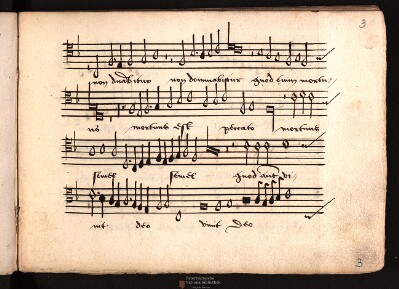 3
non dn̄abitur non domnnabitur Quod enim mortu
us mortuus est peccato mortuus
semel semel Quod aut̄ vi
uit deo viuit deo
3